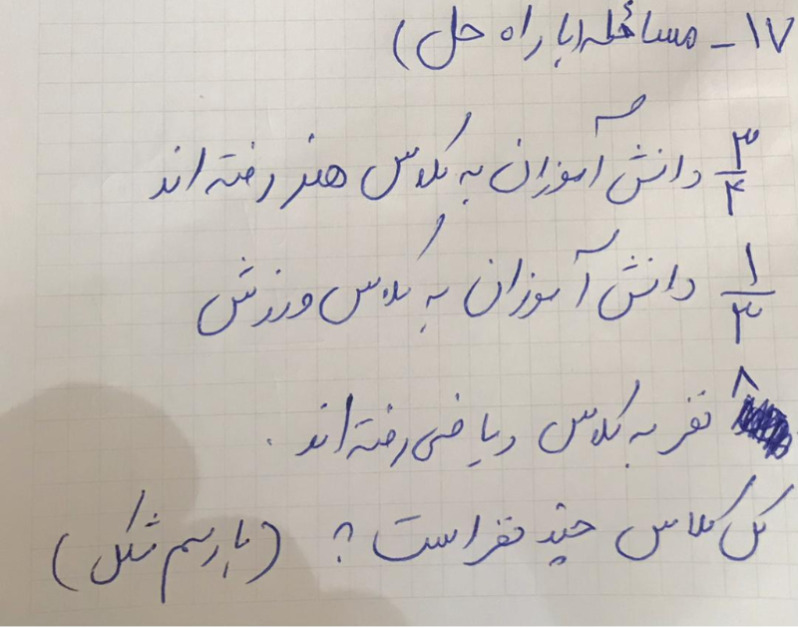 ۱۷ - مسائله (با راه حل)
۳/۴ دانش آموزان به کلاس هنر رفته اند
۱/۳ دانش آموزان به کلاس ورزش
۸ نفر به کلاس ریاضی رفته اند.
کل کلاس چند نفر است؟ (با رسم شکل)